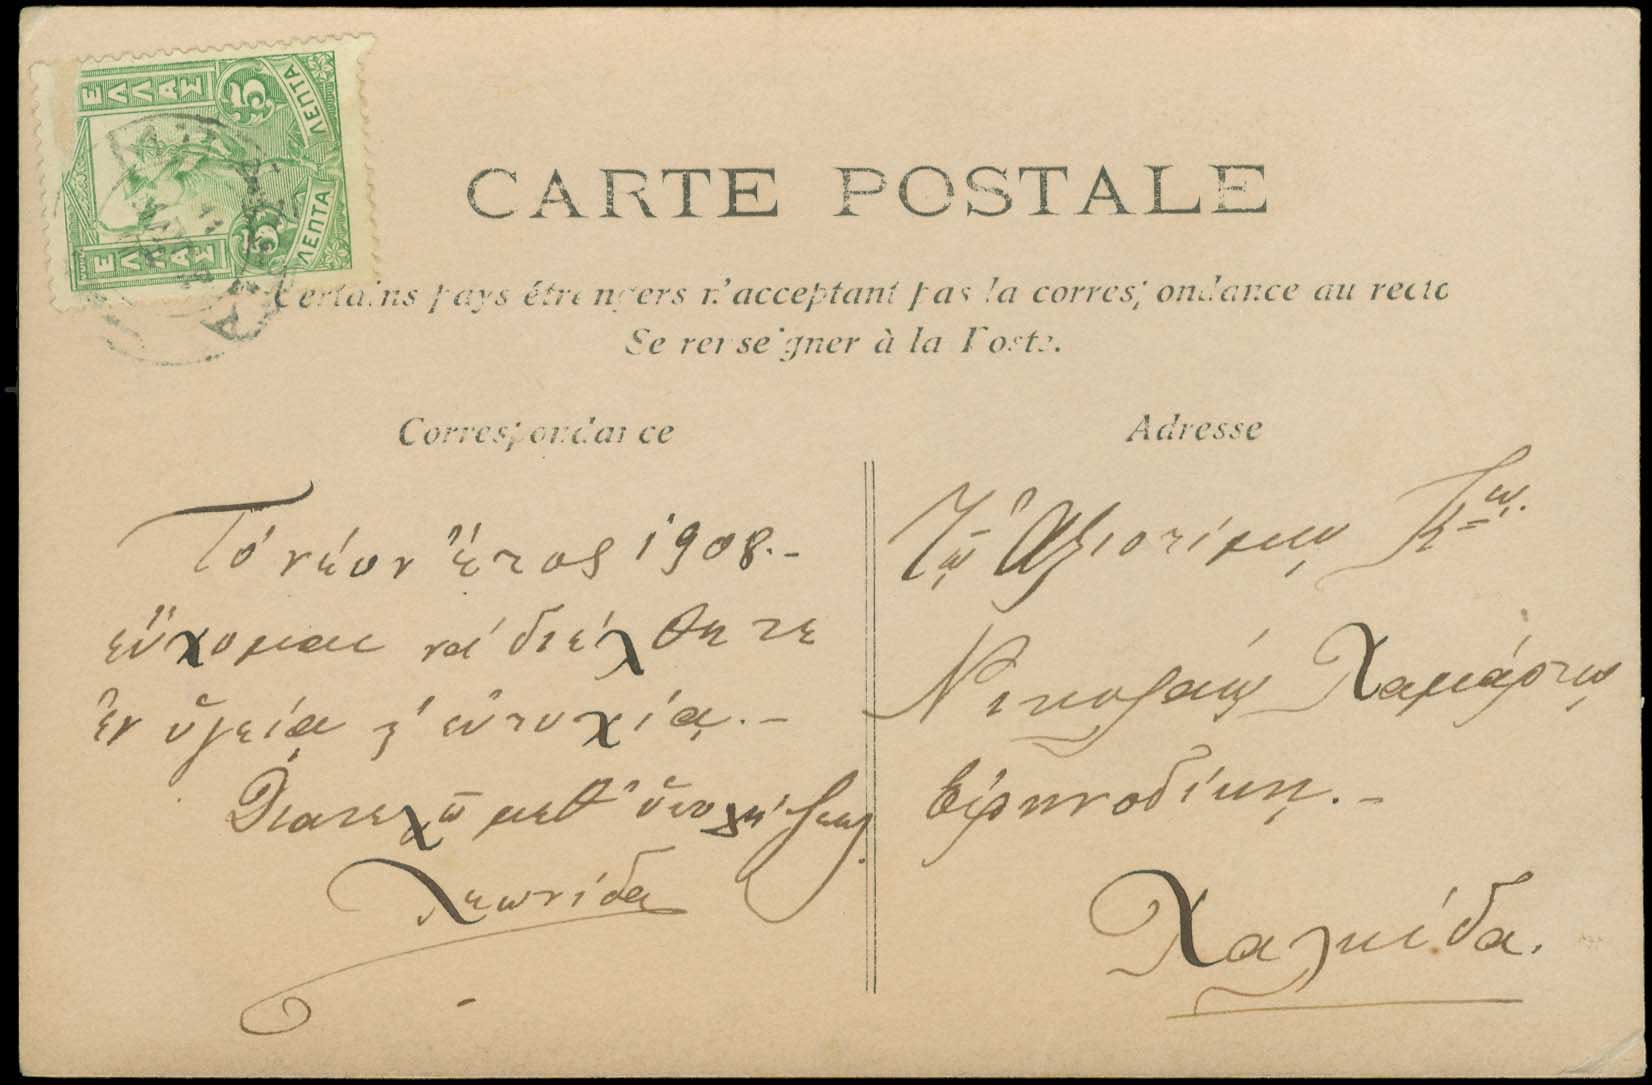 ΕΛΛΑΣ
5 ΛΕΠΤΑ
5 ΛΕΠΤΑ
ΕΛΛΑΣ
CARTE POSTALE
Certains pays étrangers n'acceptant pas la correspondance au recto
Se renseigner à la Poste.
Correspondance
Τό νέον ἔτος 1908.-
εὔχομαι νά διέλθητε
ἐν ὑγείᾳ κ' εὐτυχίᾳ.-
Διατελῶ μεθ' ὑπολήψεως
Adresse
Τῷ Ἀξιοτίμῳ Κῳ.
Νικολάῳ
Εἰρηνοδίκῃ.-
Χαλκίδα.